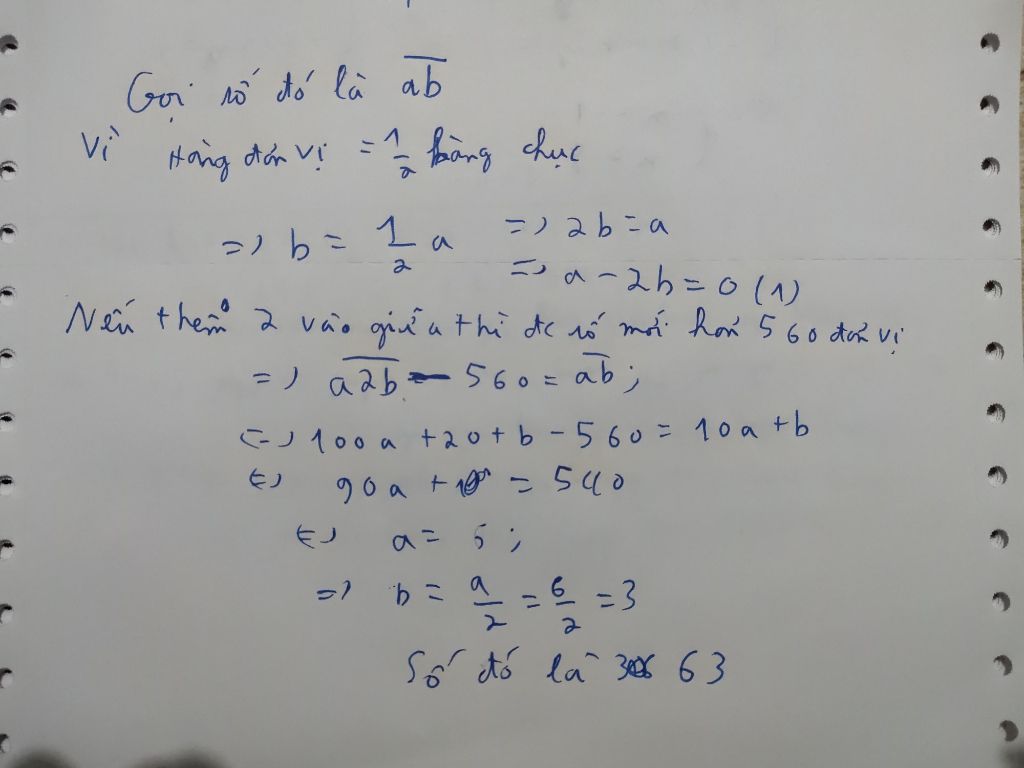 Gọi số đó là \overline{ab}
Vì Hàng đơn vị = \frac{1}{2} hàng chục
=> b = \frac{1}{2} a => 2b = a
=> a - 2b = 0 (1)
Nếu thêm 2 vào giữa thì đc số mới hơn 560 đơn vị
=> \overline{a2b} - 560 = \overline{ab};
<=> 100a + 20 + b - 560 = 10a + b
<=> 90a = 540
<=> a = 6;
=> b = \frac{a}{2} = \frac{6}{2} = 3
Số đó là 63